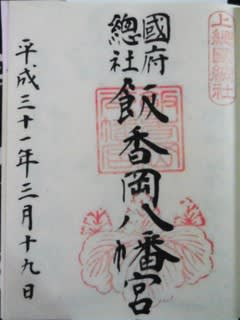 上總國總社
國府
總社
飯香岡八幡宮
平成三十一年三月十九日